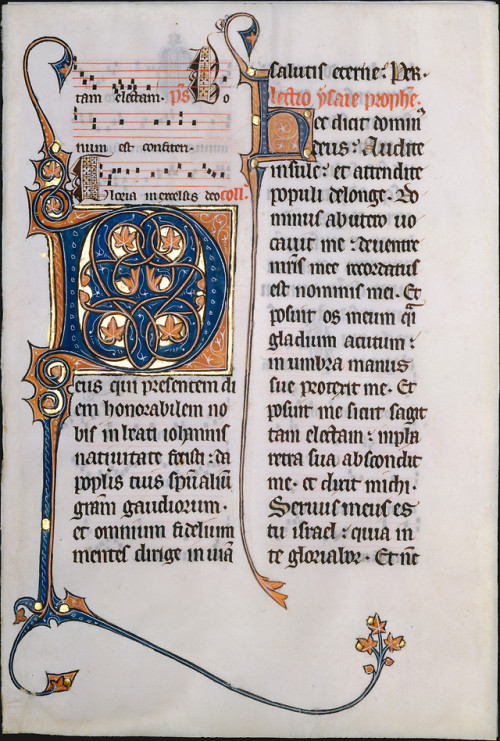 tam electam. ps Bo
num est confiteri.
Gloria in excelsis deo coll.
Deus qui presentem di
em honorabilem no
bis in beati iohannis
natiuitate fecisti: da
poplis tuis spualiū
gram gaudiorum.
et omnium fidelium
mentes dirige in uiā
salutis eterne: Per.
lectio ysaie prophe.
Hec dicit domin
deus: Audite
insule: et attendite
populi de longe. Do
minus ab utero uo
cauit me: de uentre
mris mee recordatus
est nominis mei. Et
posuit os meum qi
gladium acutum:
in umbra manus
sue protexit me. Et
posuit me sicut sagit
tam electam: in pha
retra sua abscondit
me. et dixit michi.
Seruus meus es
tu israel: quia in
te gloriabor. Et nc